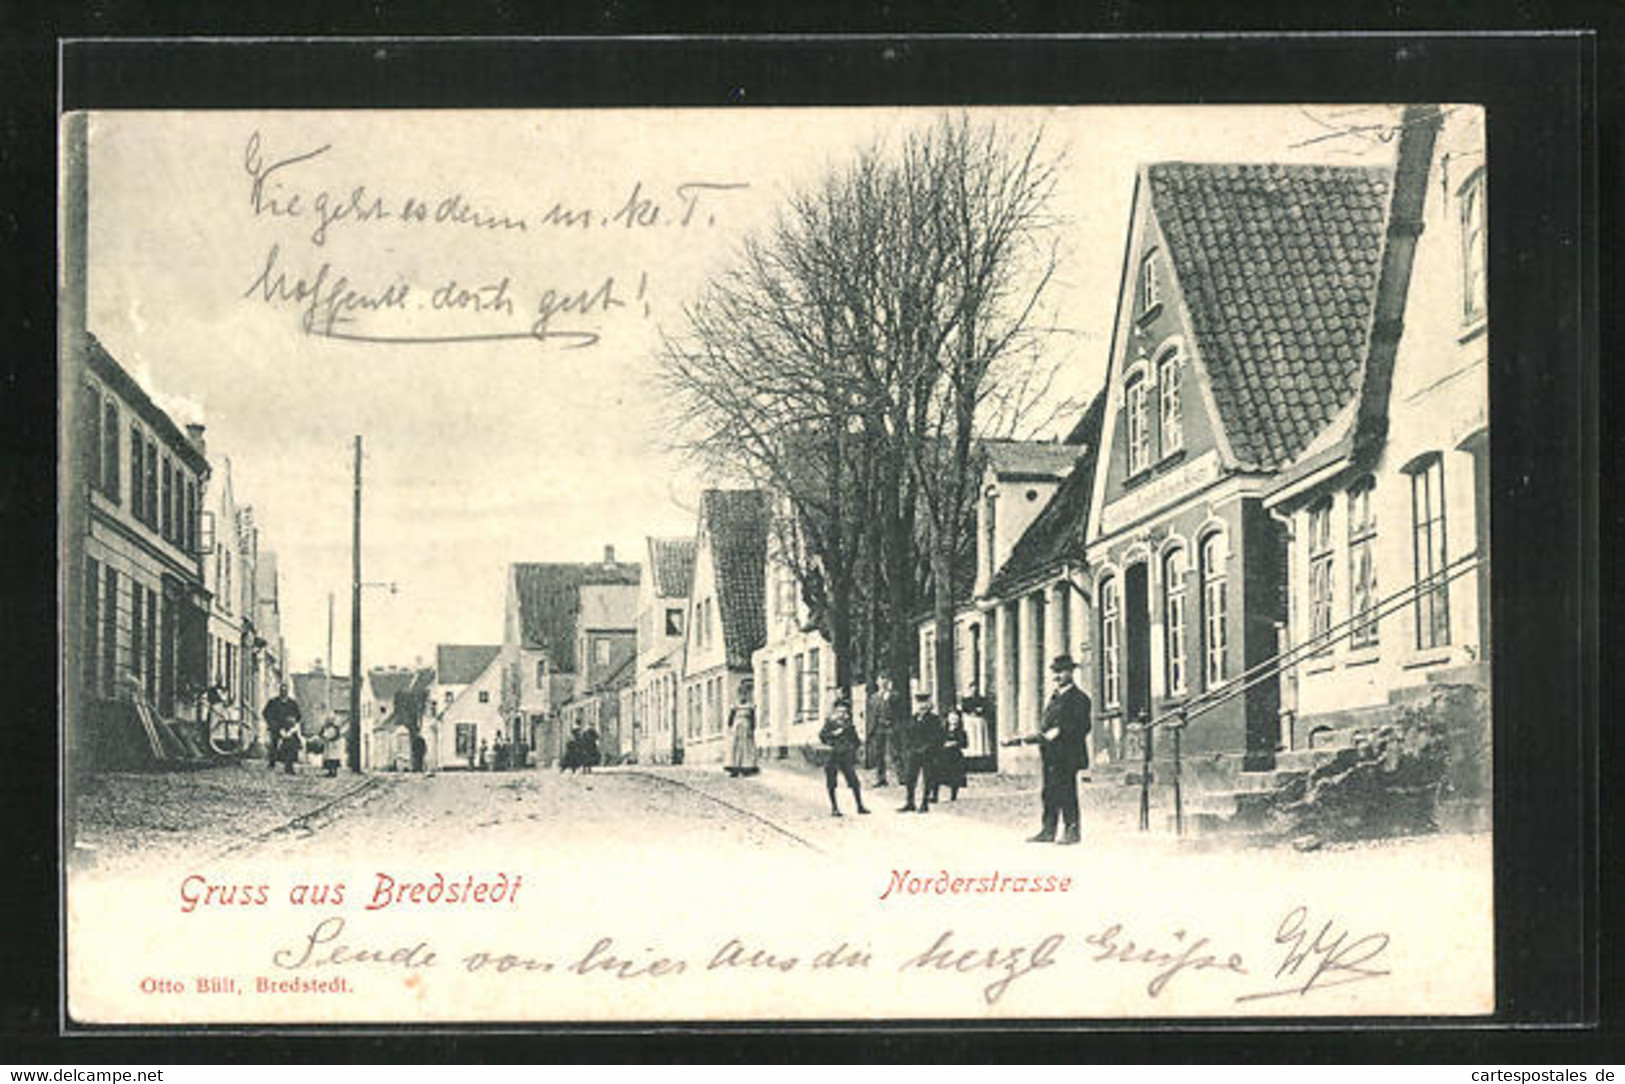 Wie geht es denn m. kl. T.
hoffentl. doch gut!
Gruss aus Bredstedt
Norderstrasse
Sende von hier aus die herzl Grüße
Otto Bült, Bredstedt.
www.cartespostales.de
cartespostales de